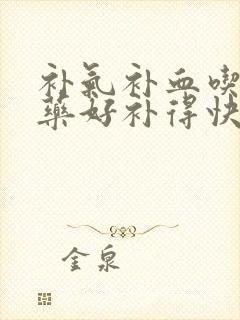 补氣补血喫
藥好补得快
金泉